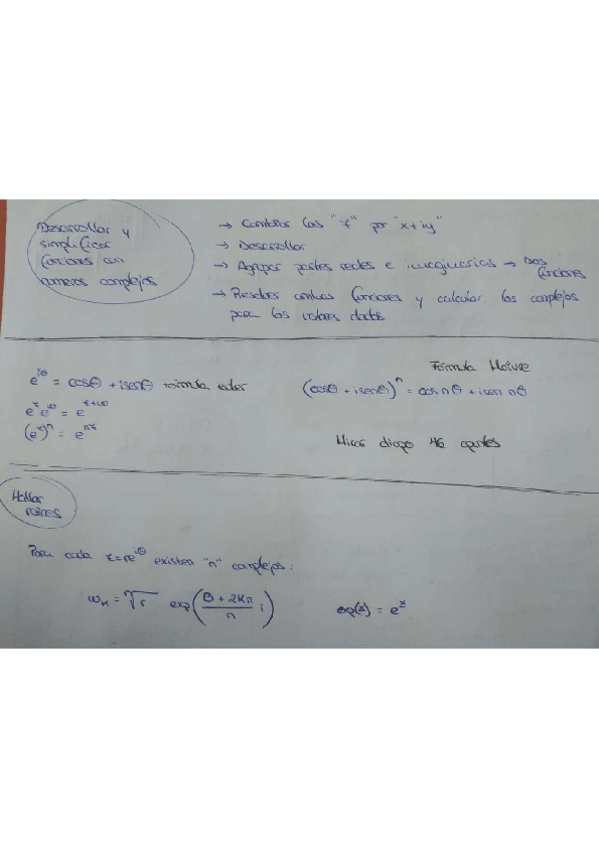 Desarrollar y
simplificar
funciones con
numeros complejos
→ Cambiar las "z" por "x+iy"
→ Desarrollar
→ Agrupar partes reales e imaginarias → Dos funciones
→ Resolver ambas funciones y calcular los complejos
para los valores dados
e^{iθ} = cosθ + isenθ Fórmula euler
Formula Moivre
(cosθ + isenθ)^n = cos nθ + isen nθ
e^z e^ω = e^{z+ω}
(e^z)^n = e^{nz}
Mirar diapo 46 apuntes
Hallar
raíces
Para cada z=re^{iθ} existen "n" complejos:
ω_k = ⁿ√r exp((θ + 2kπ)/n i)
exp(z) = e^z